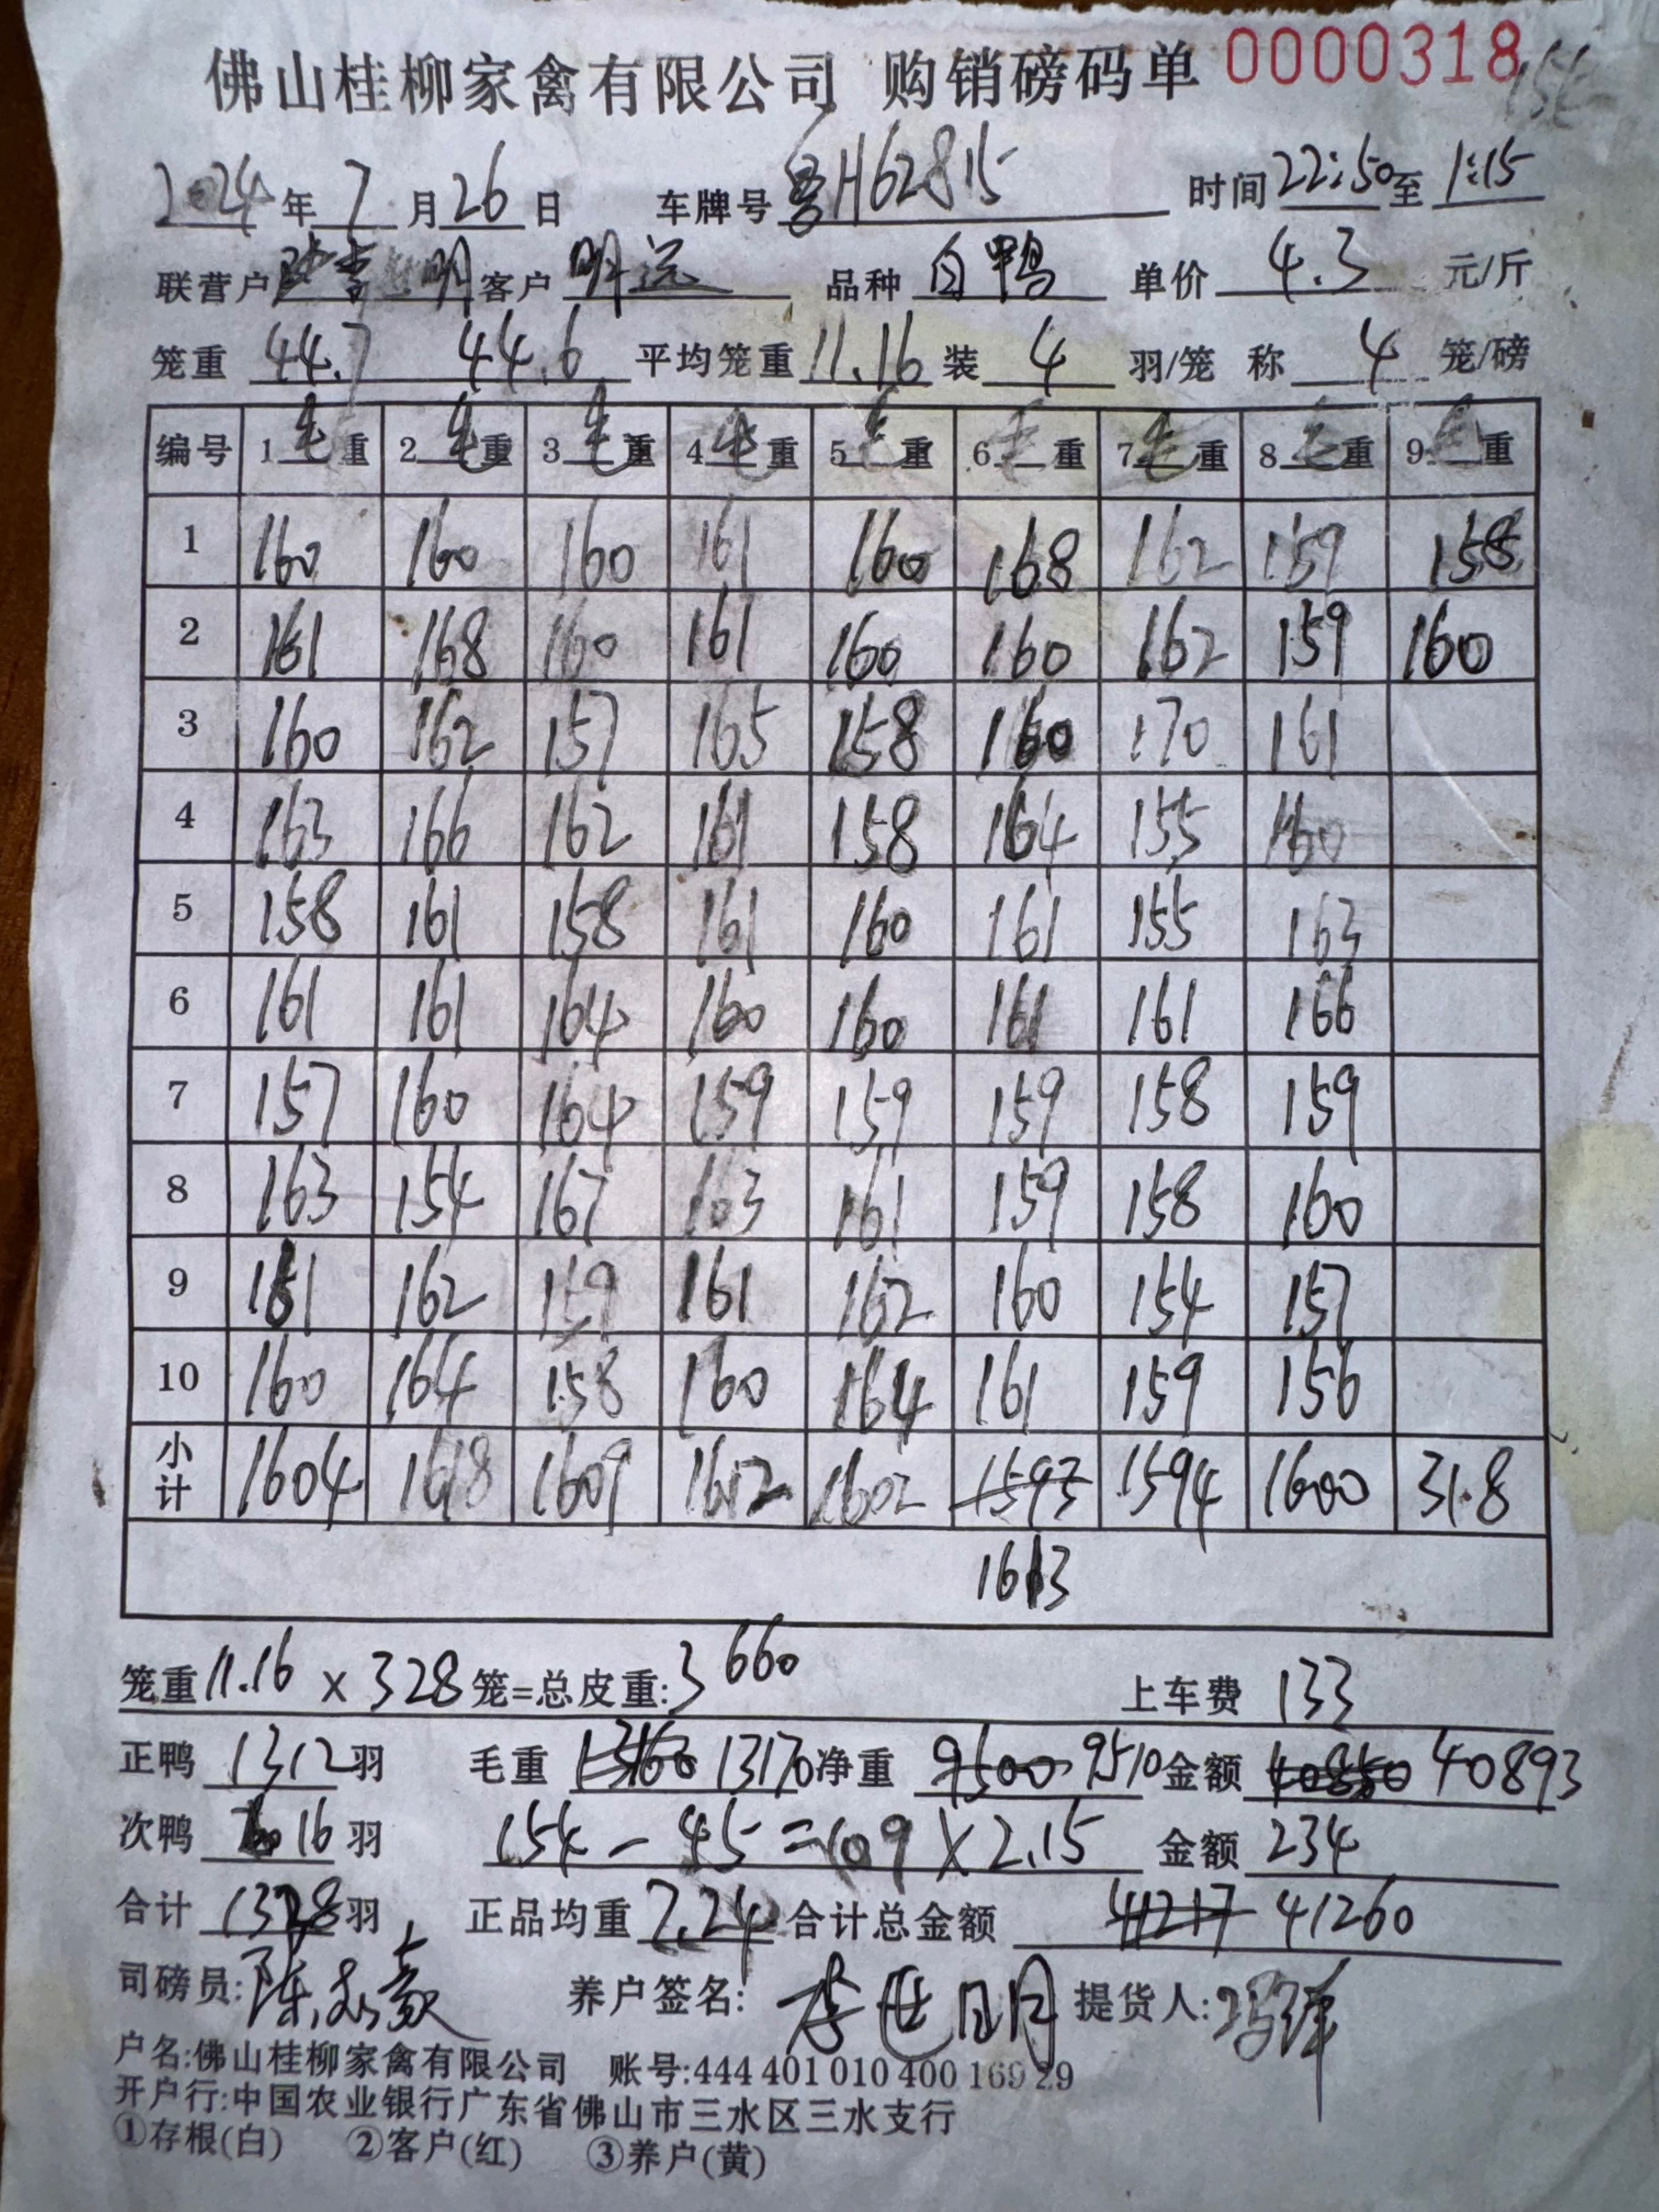 佛山桂柳家禽有限公司 购销磅码单 0000318
154
2024年7月26日 车牌号 粤H62815 时间22:50至1:15
联营户 李明 客户 明远 品种 白鸭 单价 4.3 元/斤
笼重 44.7 44.6 平均笼重 11.16 装 4 羽/笼 称 4 笼/磅
编号 1毛重 2毛重 3毛重 4毛重 5毛重 6毛重 7毛重 8毛重 9毛重
1 160 160 160 161 160 168 162 159 158
2 161 168 160 161 160 160 162 159 160
3 160 162 157 165 158 160 170 161
4 163 166 162 161 158 164 155 160
5 158 161 158 161 160 161 155 163
6 161 161 164 160 160 161 161 166
7 157 160 164 159 159 159 158 159
8 163 154 167 163 161 159 158 160
9 161 162 159 161 162 160 154 157
10 160 164 158 160 164 161 159 156
小计 1604 1618 1609 1612 1602 1593 1594 1600 318
1613
笼重 11.16 × 328 笼=总皮重: 3660 上车费 133
正鸭 1312 羽 毛重 13160 13170 净重 9500 9510 金额 40850 40893
次鸭 16 羽 154-45=109×2.15 金额 234
合计 1328 羽 正品均重 7.24 合计总金额 41217 41260
司磅员: 陈 豪 养户签名: 李世明 提货人: 冯
户名:佛山桂柳家禽有限公司 账号:444 401 010 400 169 29
开户行:中国农业银行广东省佛山市三水区三水支行
①存根(白) ②客户(红) ③养户(黄)